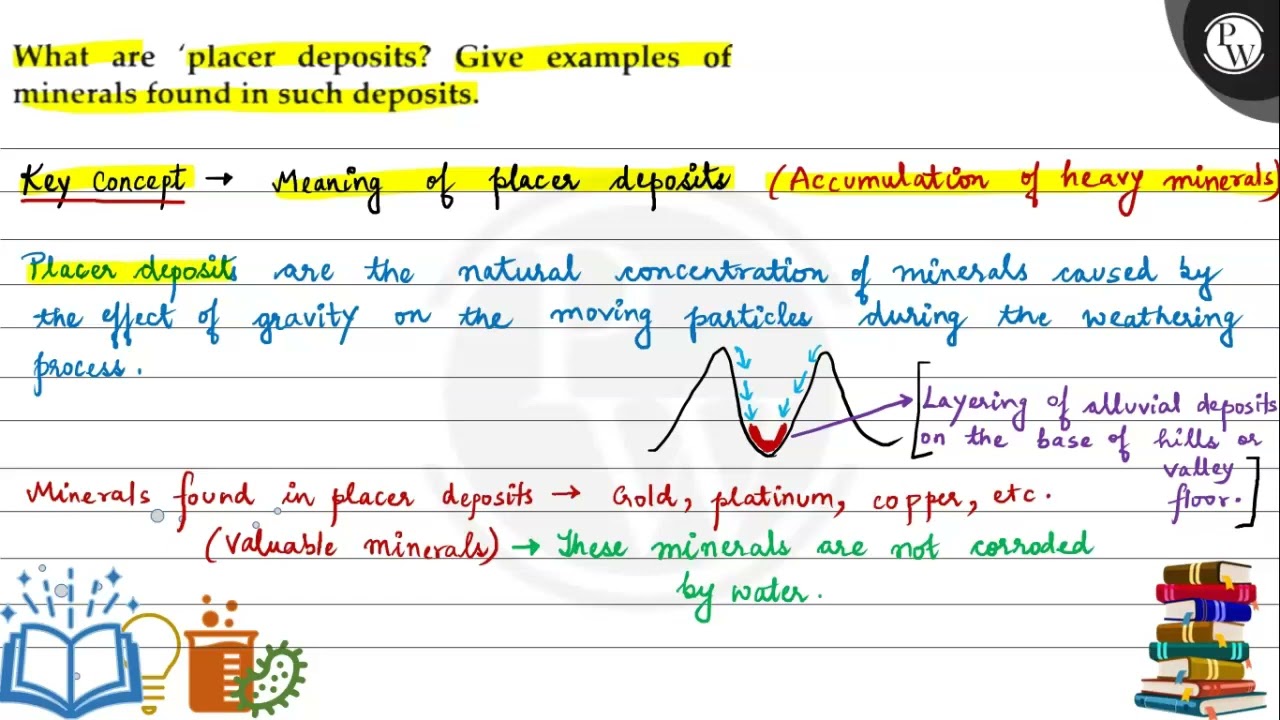 What are ‘placer deposits? Give examples of
minerals found in such deposits.
PW
Key Concept → Meaning of placer deposits (Accumulation of heavy minerals)
Placer deposits are the natural concentration of minerals caused by
the effect of gravity on the moving particles during the weathering
process.
Layering of alluvial deposits
on the base of hills or
valley
floor.
Minerals found in placer deposits → Gold, platinum, copper, etc.
(Valuable minerals) → These minerals are not corroded
by water.